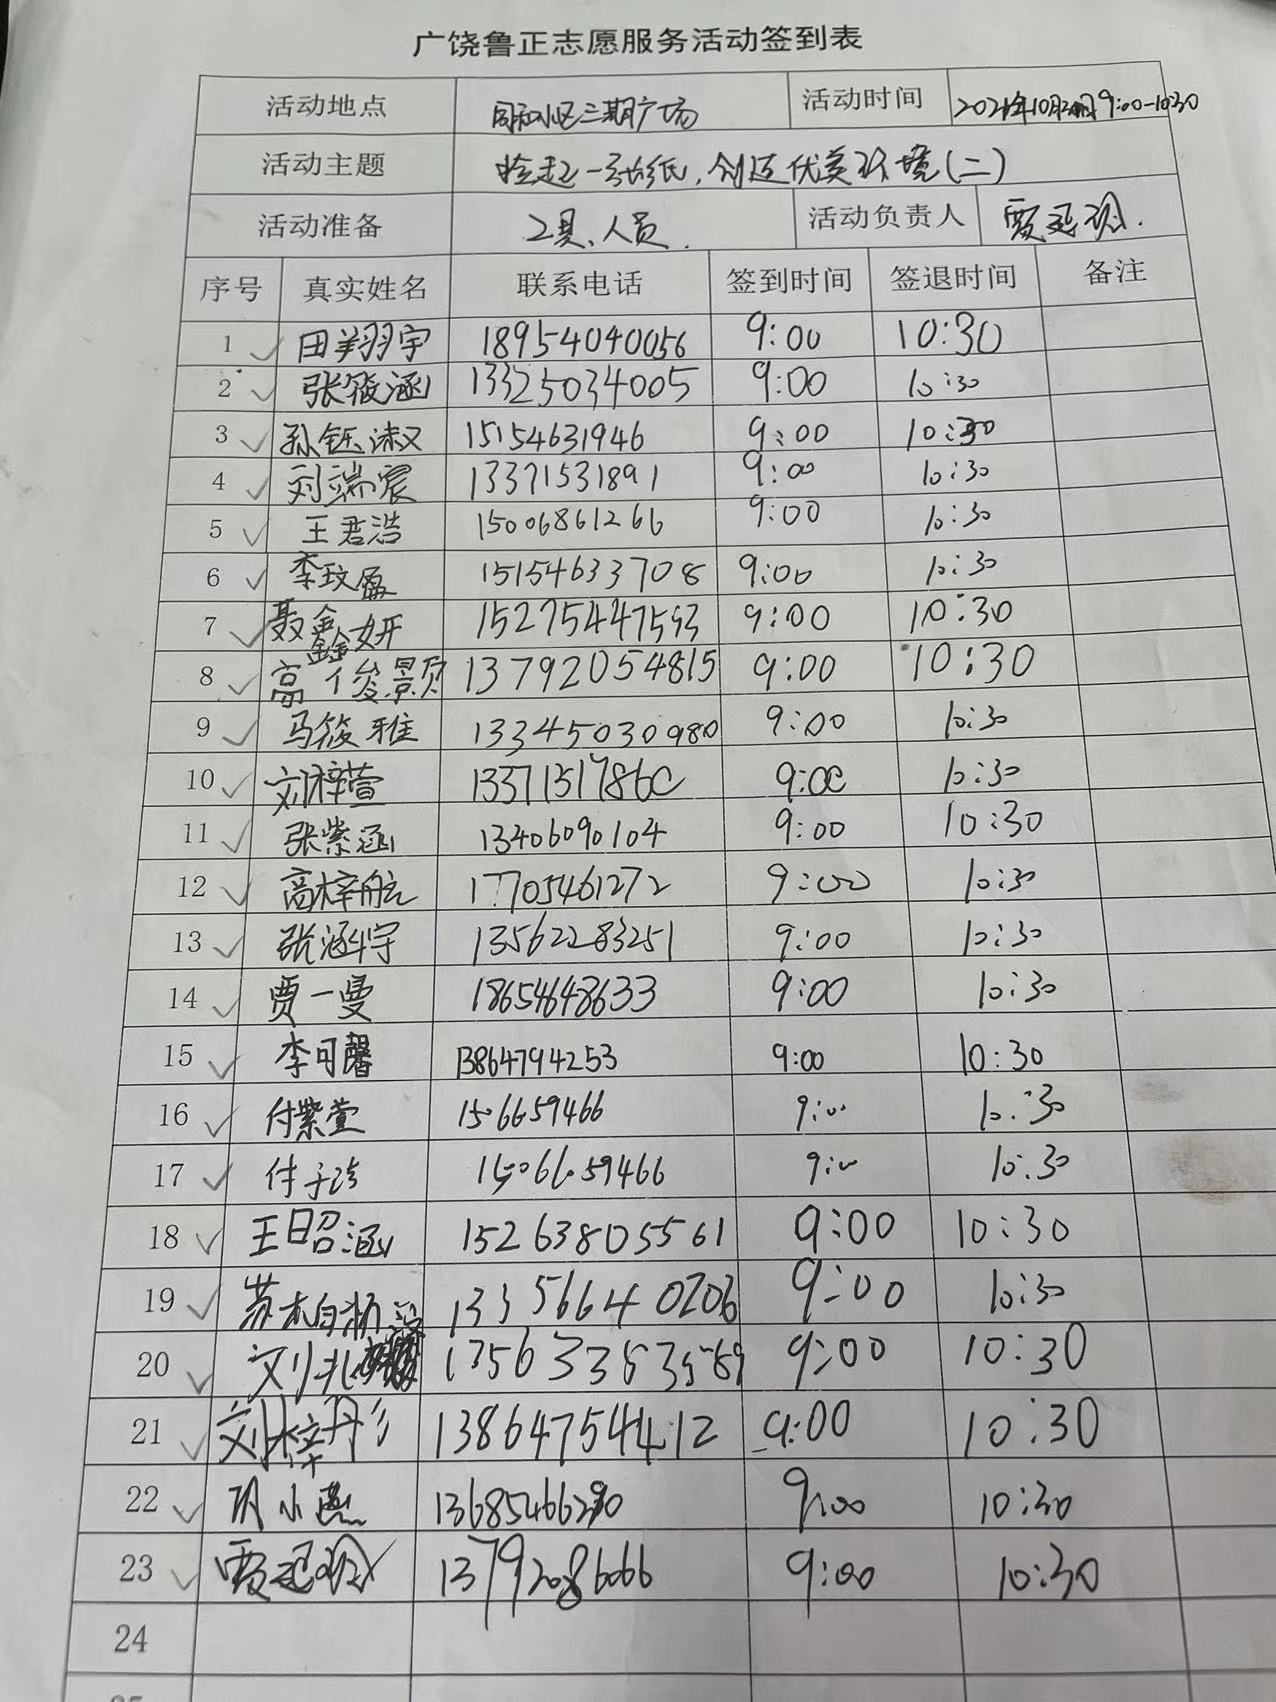 广饶鲁正志愿服务活动签到表
活动地点 同和小区三期广场 活动时间 2021年10月 9:00-10:30
活动主题 捡起一张纸,创造优美环境(二)
活动准备 工具、人员. 活动负责人 贾延
序号 真实姓名 联系电话 签到时间 签退时间 备注
1 田翔宇 18954040056 9:00 10:30
2 张筱涵 13325034005 9:00 10:30
3 孙钰淑 15154631946 9:00 10:30
4 刘端宸 13371531891 9:00 10:30
5 王君浩 15006861266 9:00 10:30
6 李玟盈 15154633708 9:00 10:30
7 聂鑫妍 15275447593 9:00 10:30
8 高俊景 13792054815 9:00 10:30
9 马筱雅 13345030980 9:00 10:30
10 刘梓萱 13371517860 9:00 10:30
11 张紫涵 13406090104 9:00 10:30
12 高梓航 17705461272 9:00 10:30
13 张涵宇 13562283251 9:00 10:30
14 贾一曼 18654648633 9:00 10:30
15 李可馨 13864794253 9:00 10:30
16 付紫萱 1506659466 9:00 10:30
17 付子 15066059466 9:00 10:30
18 王昭涵 15263805561 9:00 10:30
19 苏 13356640206 9:00 10:30
20 刘北 9:00 10:30
21 刘梓彤 13864754412 9:00 10:30
22 小燕 9:00 10:30
23 贾延 13792086066 9:00 10:30
24